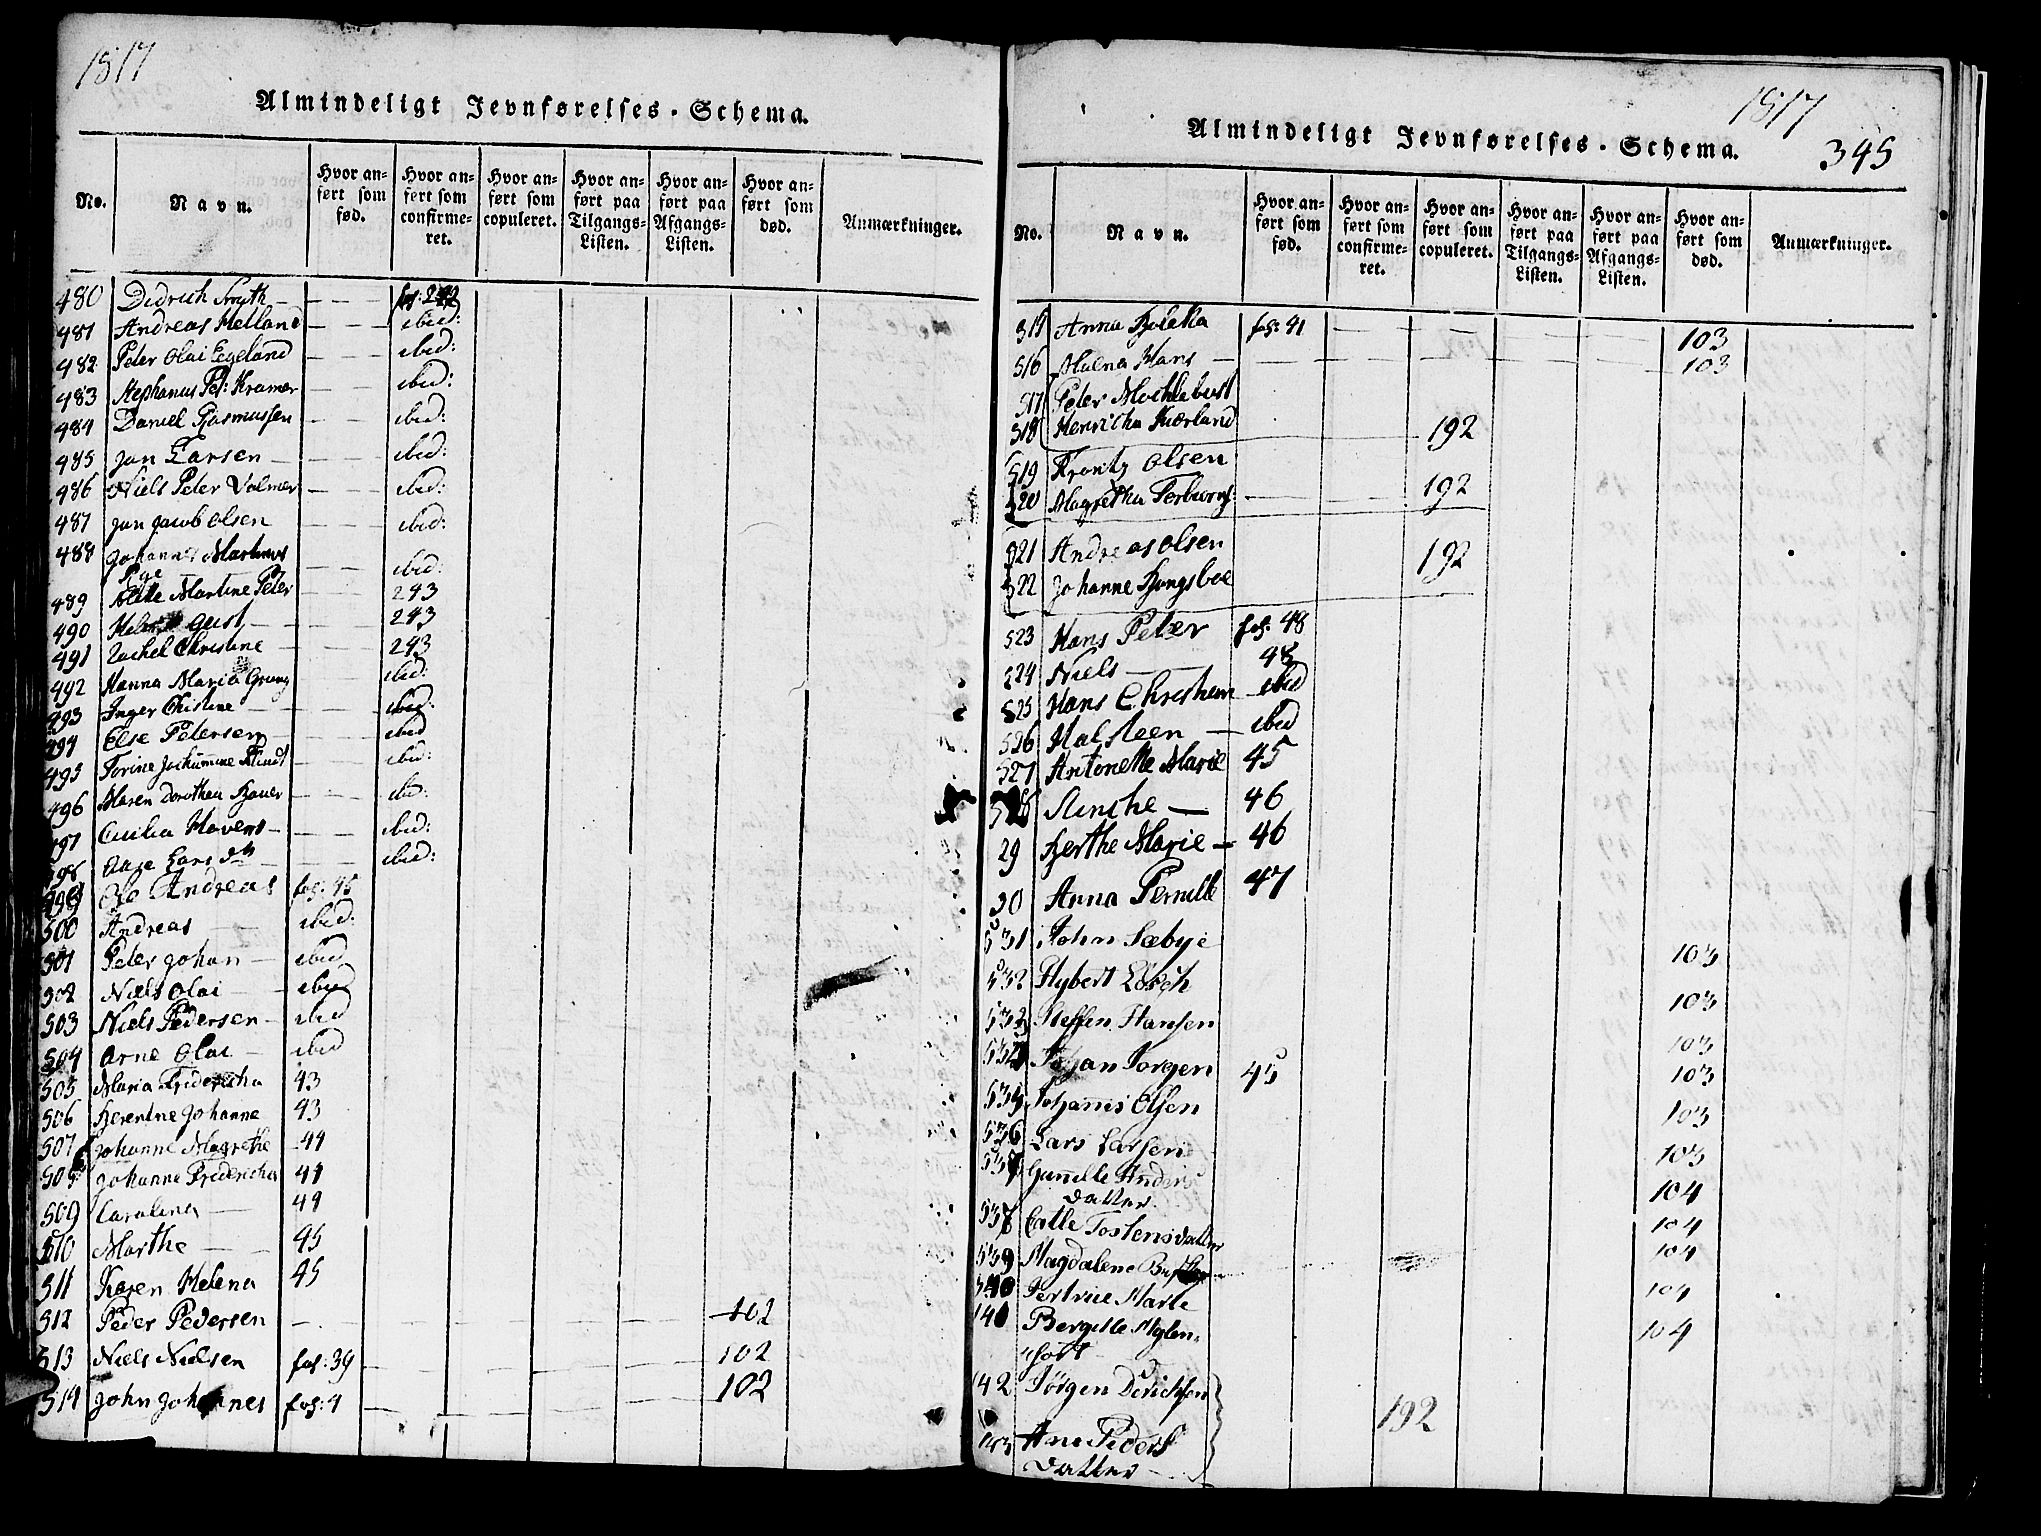 1817
Almindeligt Jevnførelses-Schema.
No.
Navn.
Hvor an-
ført som
fød.
Hvor an-
ført som
confirme-
ret.
Hvor an-
ført som
copuleret.
Hvor an-
ført paa
Tilgangs-
Listen.
Hvor an-
ført paa
Afgangs-
Listen.
Hvor an-
ført som
død.
Anmærkninger.
480 Didrich Smyth — fol: 242
481 Andreas Helland ibid:
482 Peter Olai Egeland ibid:
483 Stephanus Pet: Kramer ibid:
484 Daniel Rasmussen ibid:
485 Jan Larsen ibid:
486 Niels Peter Volmer ibid:
487 Jan Jacob Olsen ibid:
488 Johannes Martinus
ibid:
489 Alette Martine Peter 243
490 Gust 243
491 Rachel Christine 243
492 Hanna Maria Grung ibid:
493 Inger Christine ibid:
494 Else Petersen ibid
495 Torine Jochumine ibid:
496 Maren Dorothea Bauer ibid:
497 Cecilia Hovens ibid:
498 Aase Lars dtr ibid:
499 Ole Andreas fol: 45
500 Andreas ibid:
501 Peter Johan — ibid
502 Niels Olai ibid
503 Niels Pedersen — ibid
504 Arne Olai — ibid
505 Maria Fridericha 43
506 Berentne Johanne 43
507 Johanne Magrethe 44
508 Johanne Fridericha 44
509 Carolina 44
510 Marthe 45
511 Karen Helena 45
512 Peder Pedersen 102
513 Niels Nielsen fol: 39 102
514 John Johannes fol: 4 102
1817
345
Almindeligt Jevnførelses-Schema.
No.
Navn.
Hvor an-
ført som
fød.
Hvor an-
ført som
confirme-
ret.
Hvor an-
ført som
copuleret.
Hvor an-
ført paa
Tilgangs-
Listen.
Hvor an-
ført paa
Afgangs-
Listen.
Hvor an-
ført som
død.
Anmærkninger.
515 Anna fol: 41 103
516 Malena Hans — 103
517 Peter Mochlebust
518 Henricha Kuerland 192
519 Frantz Olsen
520 Magretha Torbiorns: 192
521 Andreas Olsen
522 Johanne Kongsboe 192
523 Hans Peter fol: 48
524 Niels — 48
525 Hans Christian ibid
526 Halsteen — ibid
527 Antonette Marie 45
528 Anche — 46
29 Berthe Marie — 46
30 Anna Pernille 47
531 John Sæbye 103
532 Hybert Lösch 103
533 Steffen Hansen 103
534 Johan Jørgen 45 103
535 Johannes Olsen 103
536 Lars Larsen 103
537 Gunnille Anders
datter 104
538 Catle Tostensdatter 104
539 Magdalene 104
540 Gertrue Marie 104
140 Bergitte
104
142 Jörgen Derichsen
192
143 Ane Peders
datter